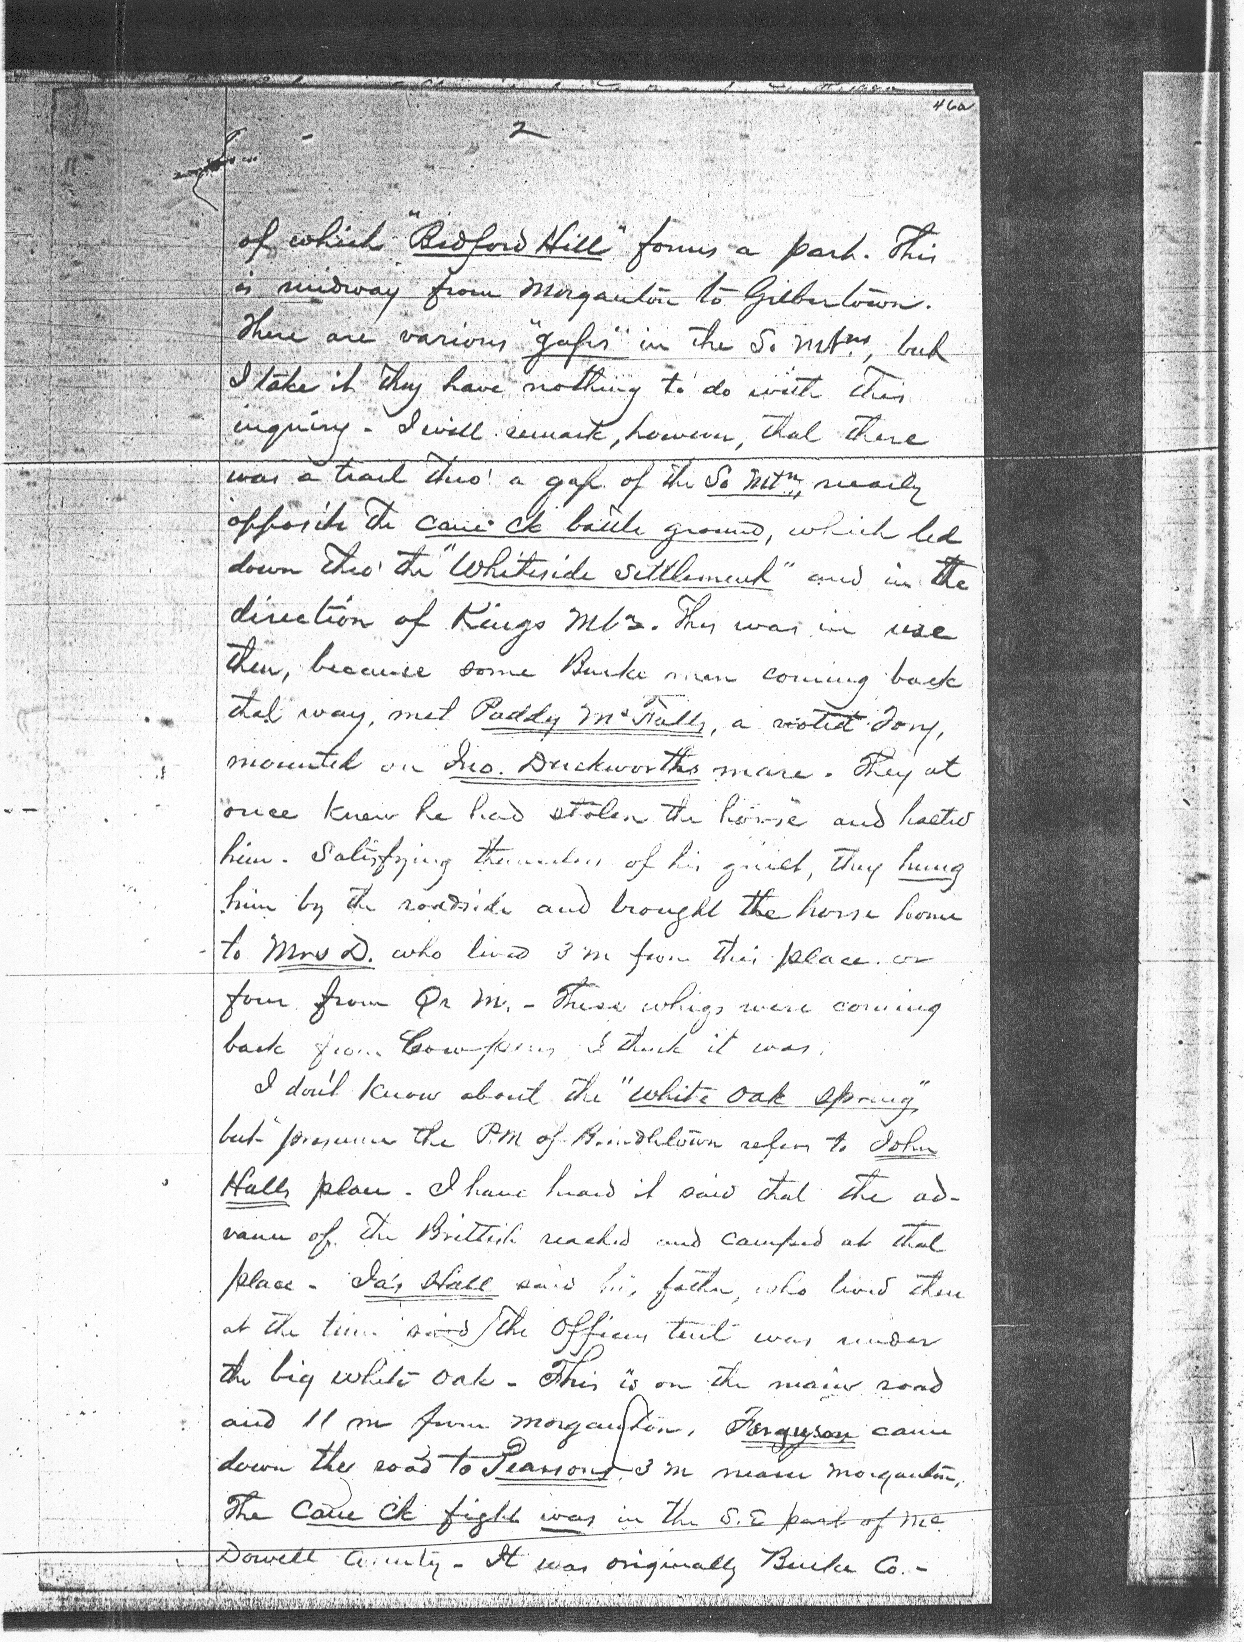 46a
2
of which "Bedford Hill" forms a part. This
is midway from Morganton to Gilbertown.
There are various "gaps" in the So Mtns, but
I take it they have nothing to do with this
inquiry - I will remark, however, that there
was a trail thro' a gap of the So Mtn, nearly
opposite the Cane Ck battle ground, which led
down thro' the "Whiteside Settlement" and in the
direction of Kings Mtn. This was in use
then, because some Burke men coming back
that way, met Paddy McFalls, a noted Tory,
mounted on Jno. Duckworths mare. They at
once knew he had stolen the horse and halted
him. Satisfying themselves of his guilt, they hung
him by the roadside and brought the horse home
to Mrs D. who lived 3 m from this place or
four from Qr M. - These whigs were coming
back from Cowpens I think it was.
I don't know about the "White Oak Spring"
but presume the PM of Brindletown refers to John
Halls place - I have heard it said that the ad-
vance of the British reached and camped at that
place - Jas Hall said his father, who lived then
at the time said the Officers tent was under
the big White Oak - This is on the main road
and 11 m from Morganton. Ferguson came
down the road to Pearsons, 3 m nearer Morganton.
The Cane Ck fight was in the S.E part of Mc
Dowell County - It was originally Burke Co. -